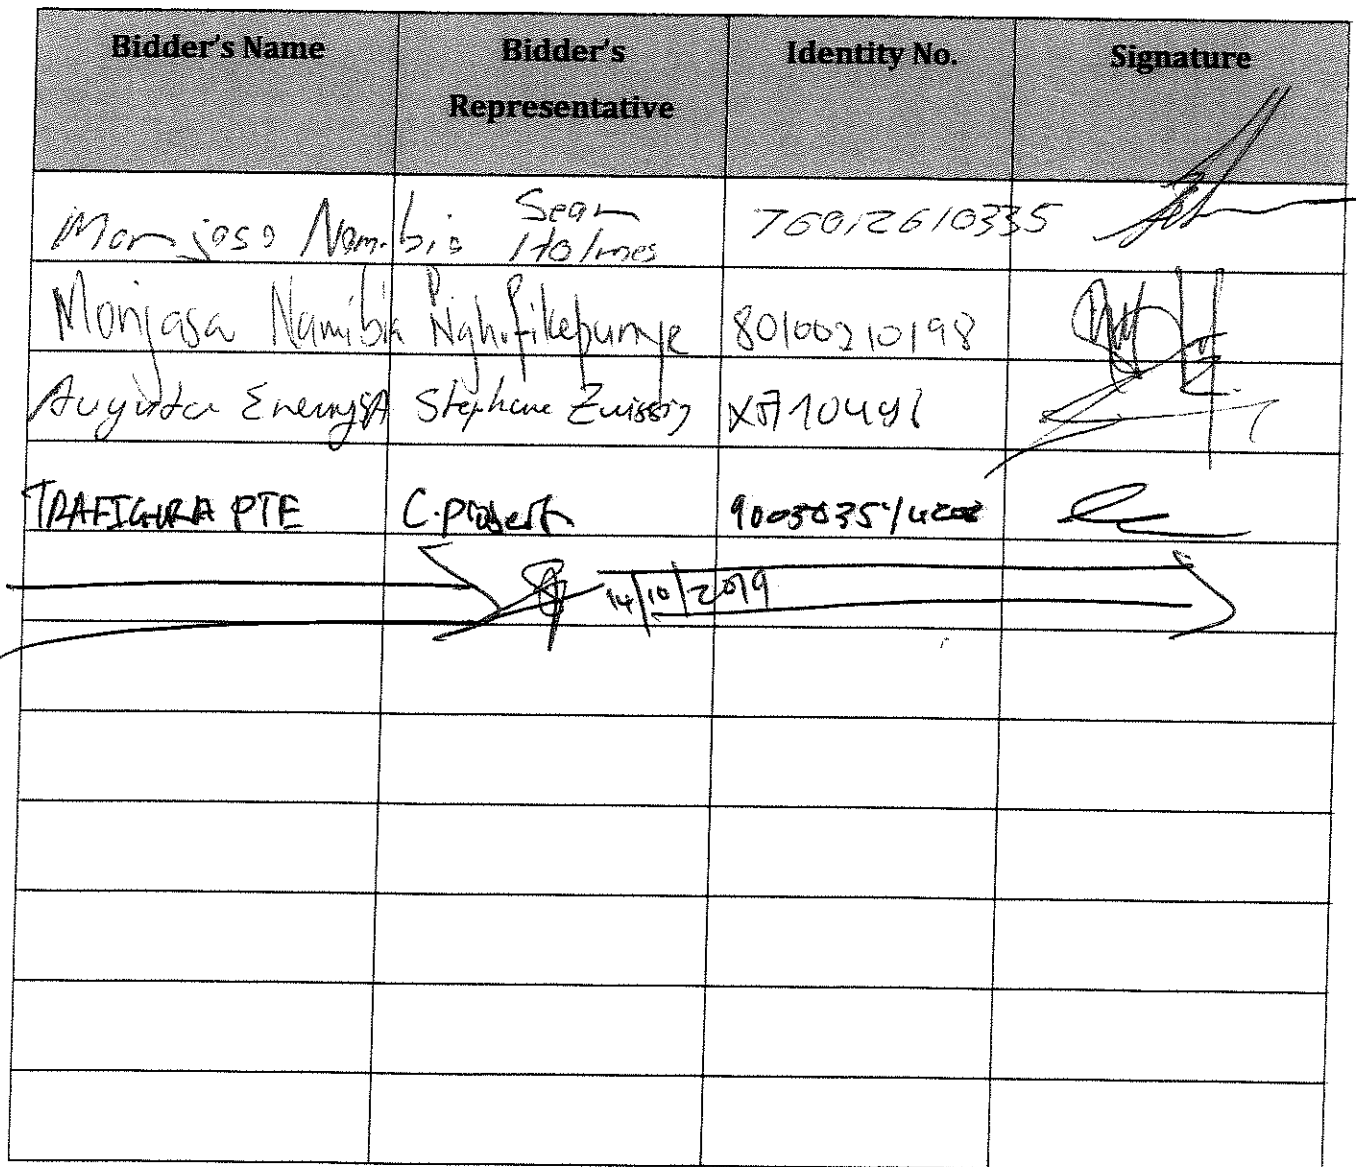 Bidder's Name Bidder's Representative Identity No. Signature
Monjasa Namibia Sean Holmes 76012610335
Monjasa Namibia P. Nghifikepunye 80100210198
Augusta Energy SA Stephane
TRAFIGURA PTE C. Probert
14/10/2019